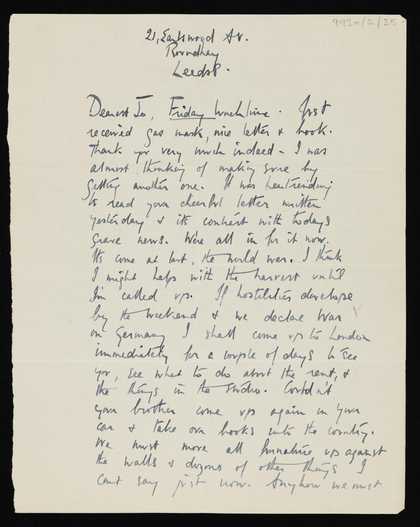 9920/2/25
21, Eastwood Av.
Roundhay
Leeds 8.
Dearest Jo, Friday lunchtime. Just
received gas mask, nice letter & book.
Thank you very much indeed - I was
almost thinking of making sure by
getting another one. It was heartrending
to read your cheerful letter written
yesterday & its contrast with todays
grave news. We're all in for it now.
Its come at last, the world war. I think
I might help with the harvest until
I'm called up. If hostilities develope
by the weekend & we declare war
on Germany I shall come up to London
immediately for a couple of days to see
you, see what to do about the rent, &
the things in the studio. Couldn't
your brother come up again in your
car & take our books into the country.
We must move all furniture up against
the walls & dozens of other things I
cant say just now. Anyhow we must